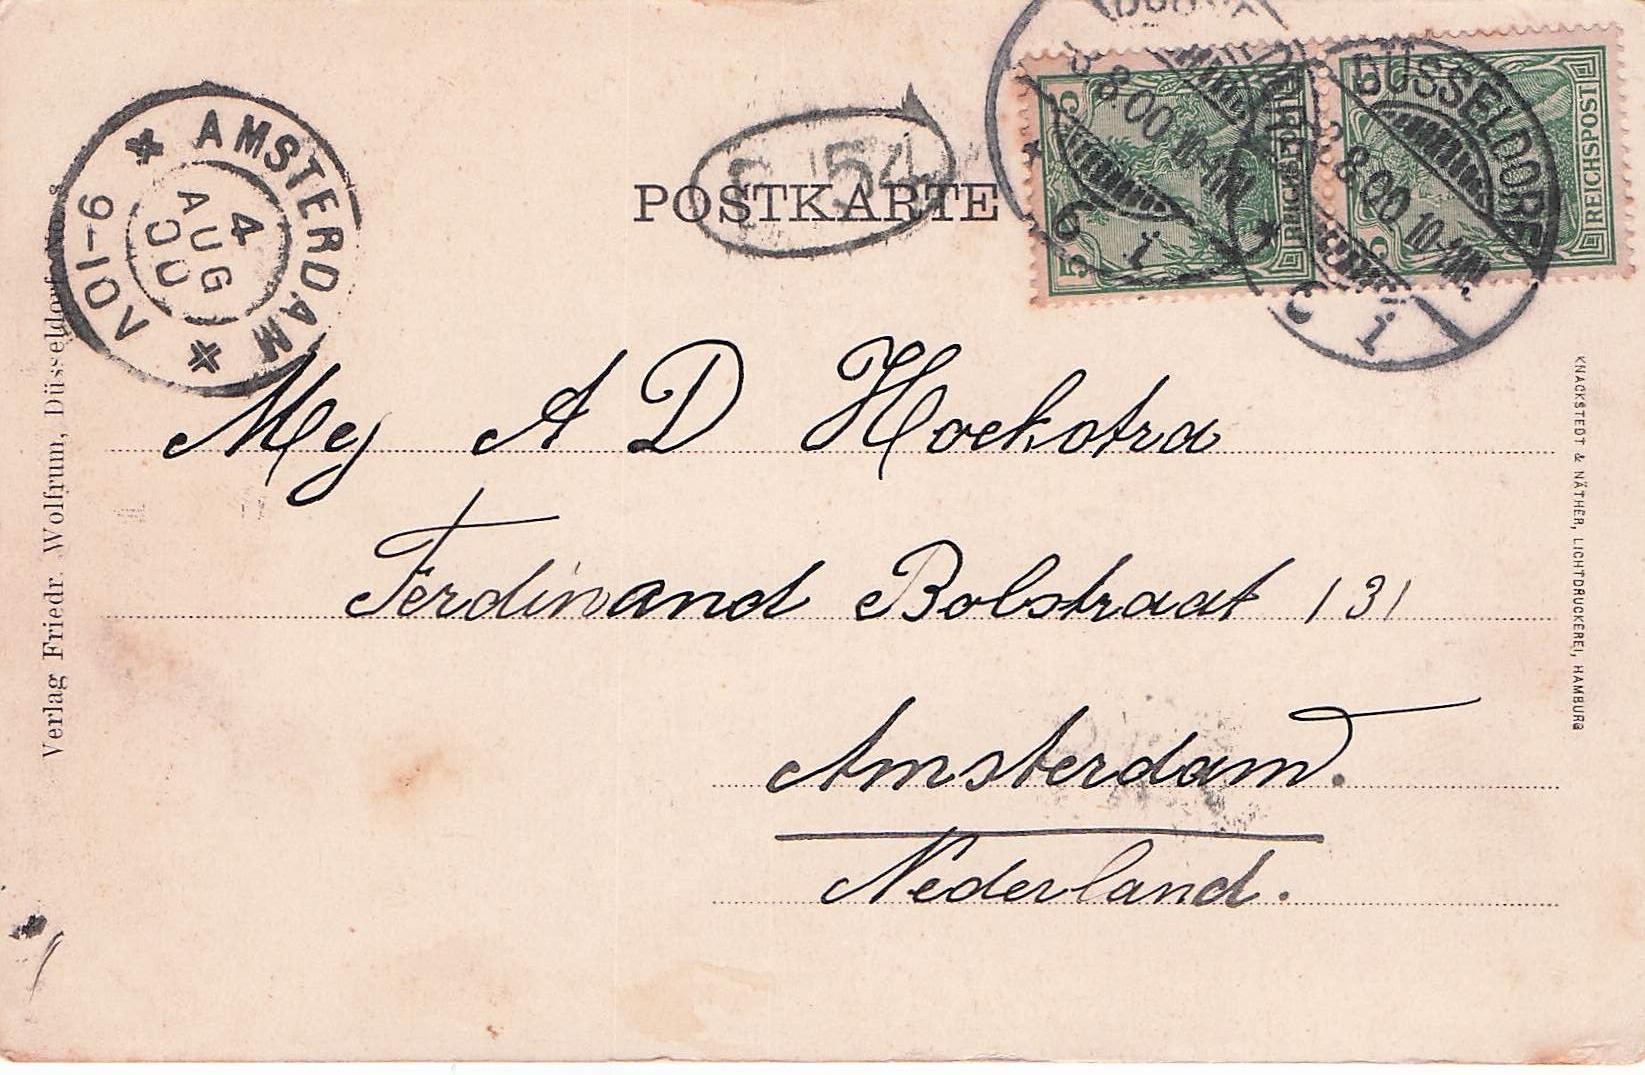 POSTKARTE
AMSTERDAM
4
AUG
00
9-10V
REICHSPOST
5
REICHSPOST
5
DÜSSELDORF
8.00 10-11N.
1
i
Mej A D Hoekstra
Ferdinand Bolstraat 131
Amsterdam.
Nederland.
Verlag Friedr. Wolfrum, Düsseldorf.
KNACKSTEDT & NÄTHER, LICHTDRUCKEREI, HAMBURG